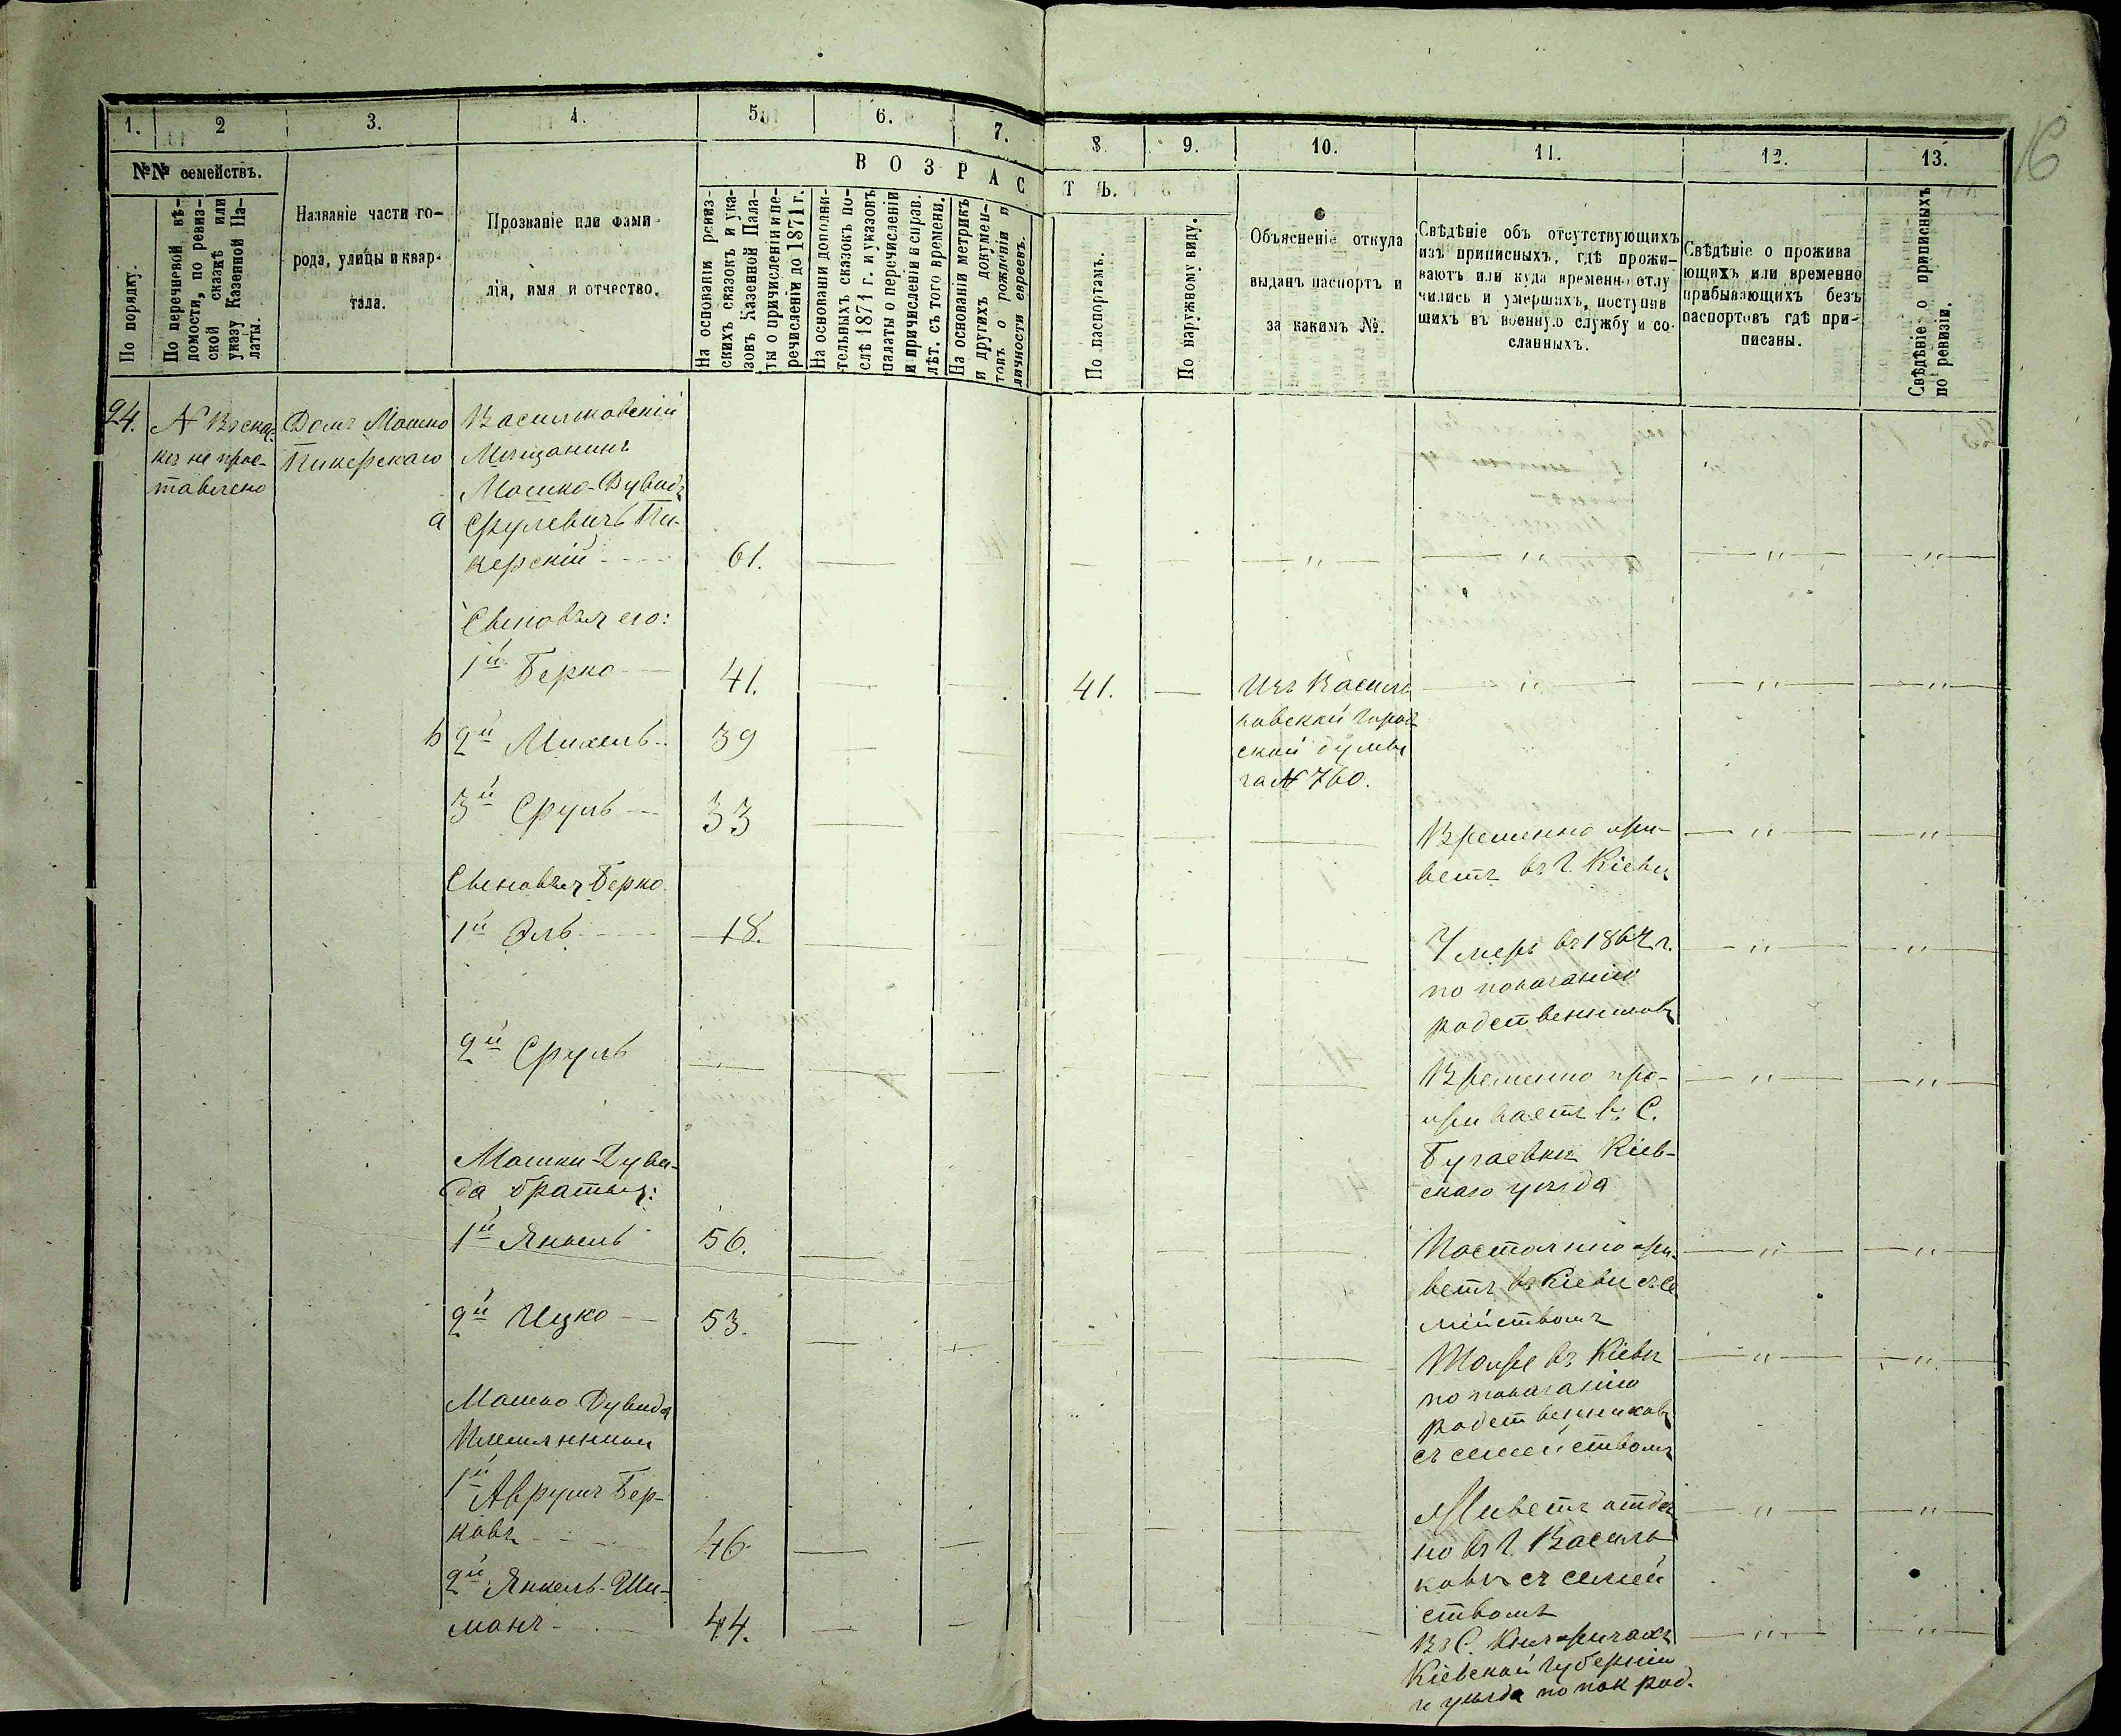 1.
2
3.
4.
5.
6.
7.
8
9.
10.
11.
12.
13.
16
№№ семействъ.
По порядку.
По перечневой вѣ-
домости, по ревиз-
ской сказкѣ или
указу Казенной Па-
латы.
Названіе части го-
рода, улицы и квар-
тала.
Прозваніе или фами-
лія, имя и отчество.
ВОЗРАС
ТЪ.
На основаніи ревиз-
скихъ сказокъ и ука-
зовъ Казенной Пала-
ты о причисленіи и пе-
речисленіи до 1871 г.
На основаніи дополни-
тельныхъ сказокъ по-
слѣ 1871 г. и указовъ
палаты о перечисленіи
и причисленіи и справ.
лѣт. съ того времени.
На основаніи метрикъ
и другихъ докумен-
товъ о рожденіи и
личности евреевъ.
По паспортамъ.
По наружному виду.
Объясненіе откуда
выданъ паспортъ и
за какимъ №.
Свѣдѣніе объ отсутствующихъ
изъ приписныхъ, гдѣ прожи-
ваютъ или куда временно отлу
чились и умершихъ, поступив
шихъ въ военную службу и со-
сланныхъ.
Свѣдѣніе о прожива
ющихъ или временно
прибывающихъ безъ
паспортовъ гдѣ при-
писаны.
Свѣдѣніе о приписныхъ
по ревизіи.
24.
N Въ сказ-
кѣ не прос-
тавлено
Домъ Мошко
Пикерскаго
Васильковскій
Мѣщанинъ
Мошко-Дувидъ
а Срулевичъ Пи-
керскій 61.
Сыновья его:
1й Берко 41. 41.
Изъ Василь
ковской город
ской думы
за N 760.
b 2й Михель 39
3й Сруль 33
Временно жи-
ветъ въ г. Кіевѣ
Сыновья Берко
1й Эль 18.
Умеръ въ 1867 г.
по показанію
родственниковъ
2й Сруль
Временно про-
живаетъ въ С.
Бугаевкѣ Кіев-
скаго уѣзда
Мошки-Дуви-
да братья:
1й Янкель 56.
Постоянно жи-
ветъ въ Кіевѣ съ се
мействомъ
2й Ицко 53.
Тоже въ Кіевѣ
по показанію
родственниковъ
съ семействомъ
Мошко Дувида
Племянники
1й Аврумъ Бер-
ковъ 46
Живетъ отдѣль
но въ г. Василь
ковѣ съ семей
ствомъ
2й Янкель-Ши-
манъ 44.
Въ С. Княжичахъ
Кіевской Губерніи
и уѣзда по пок род.